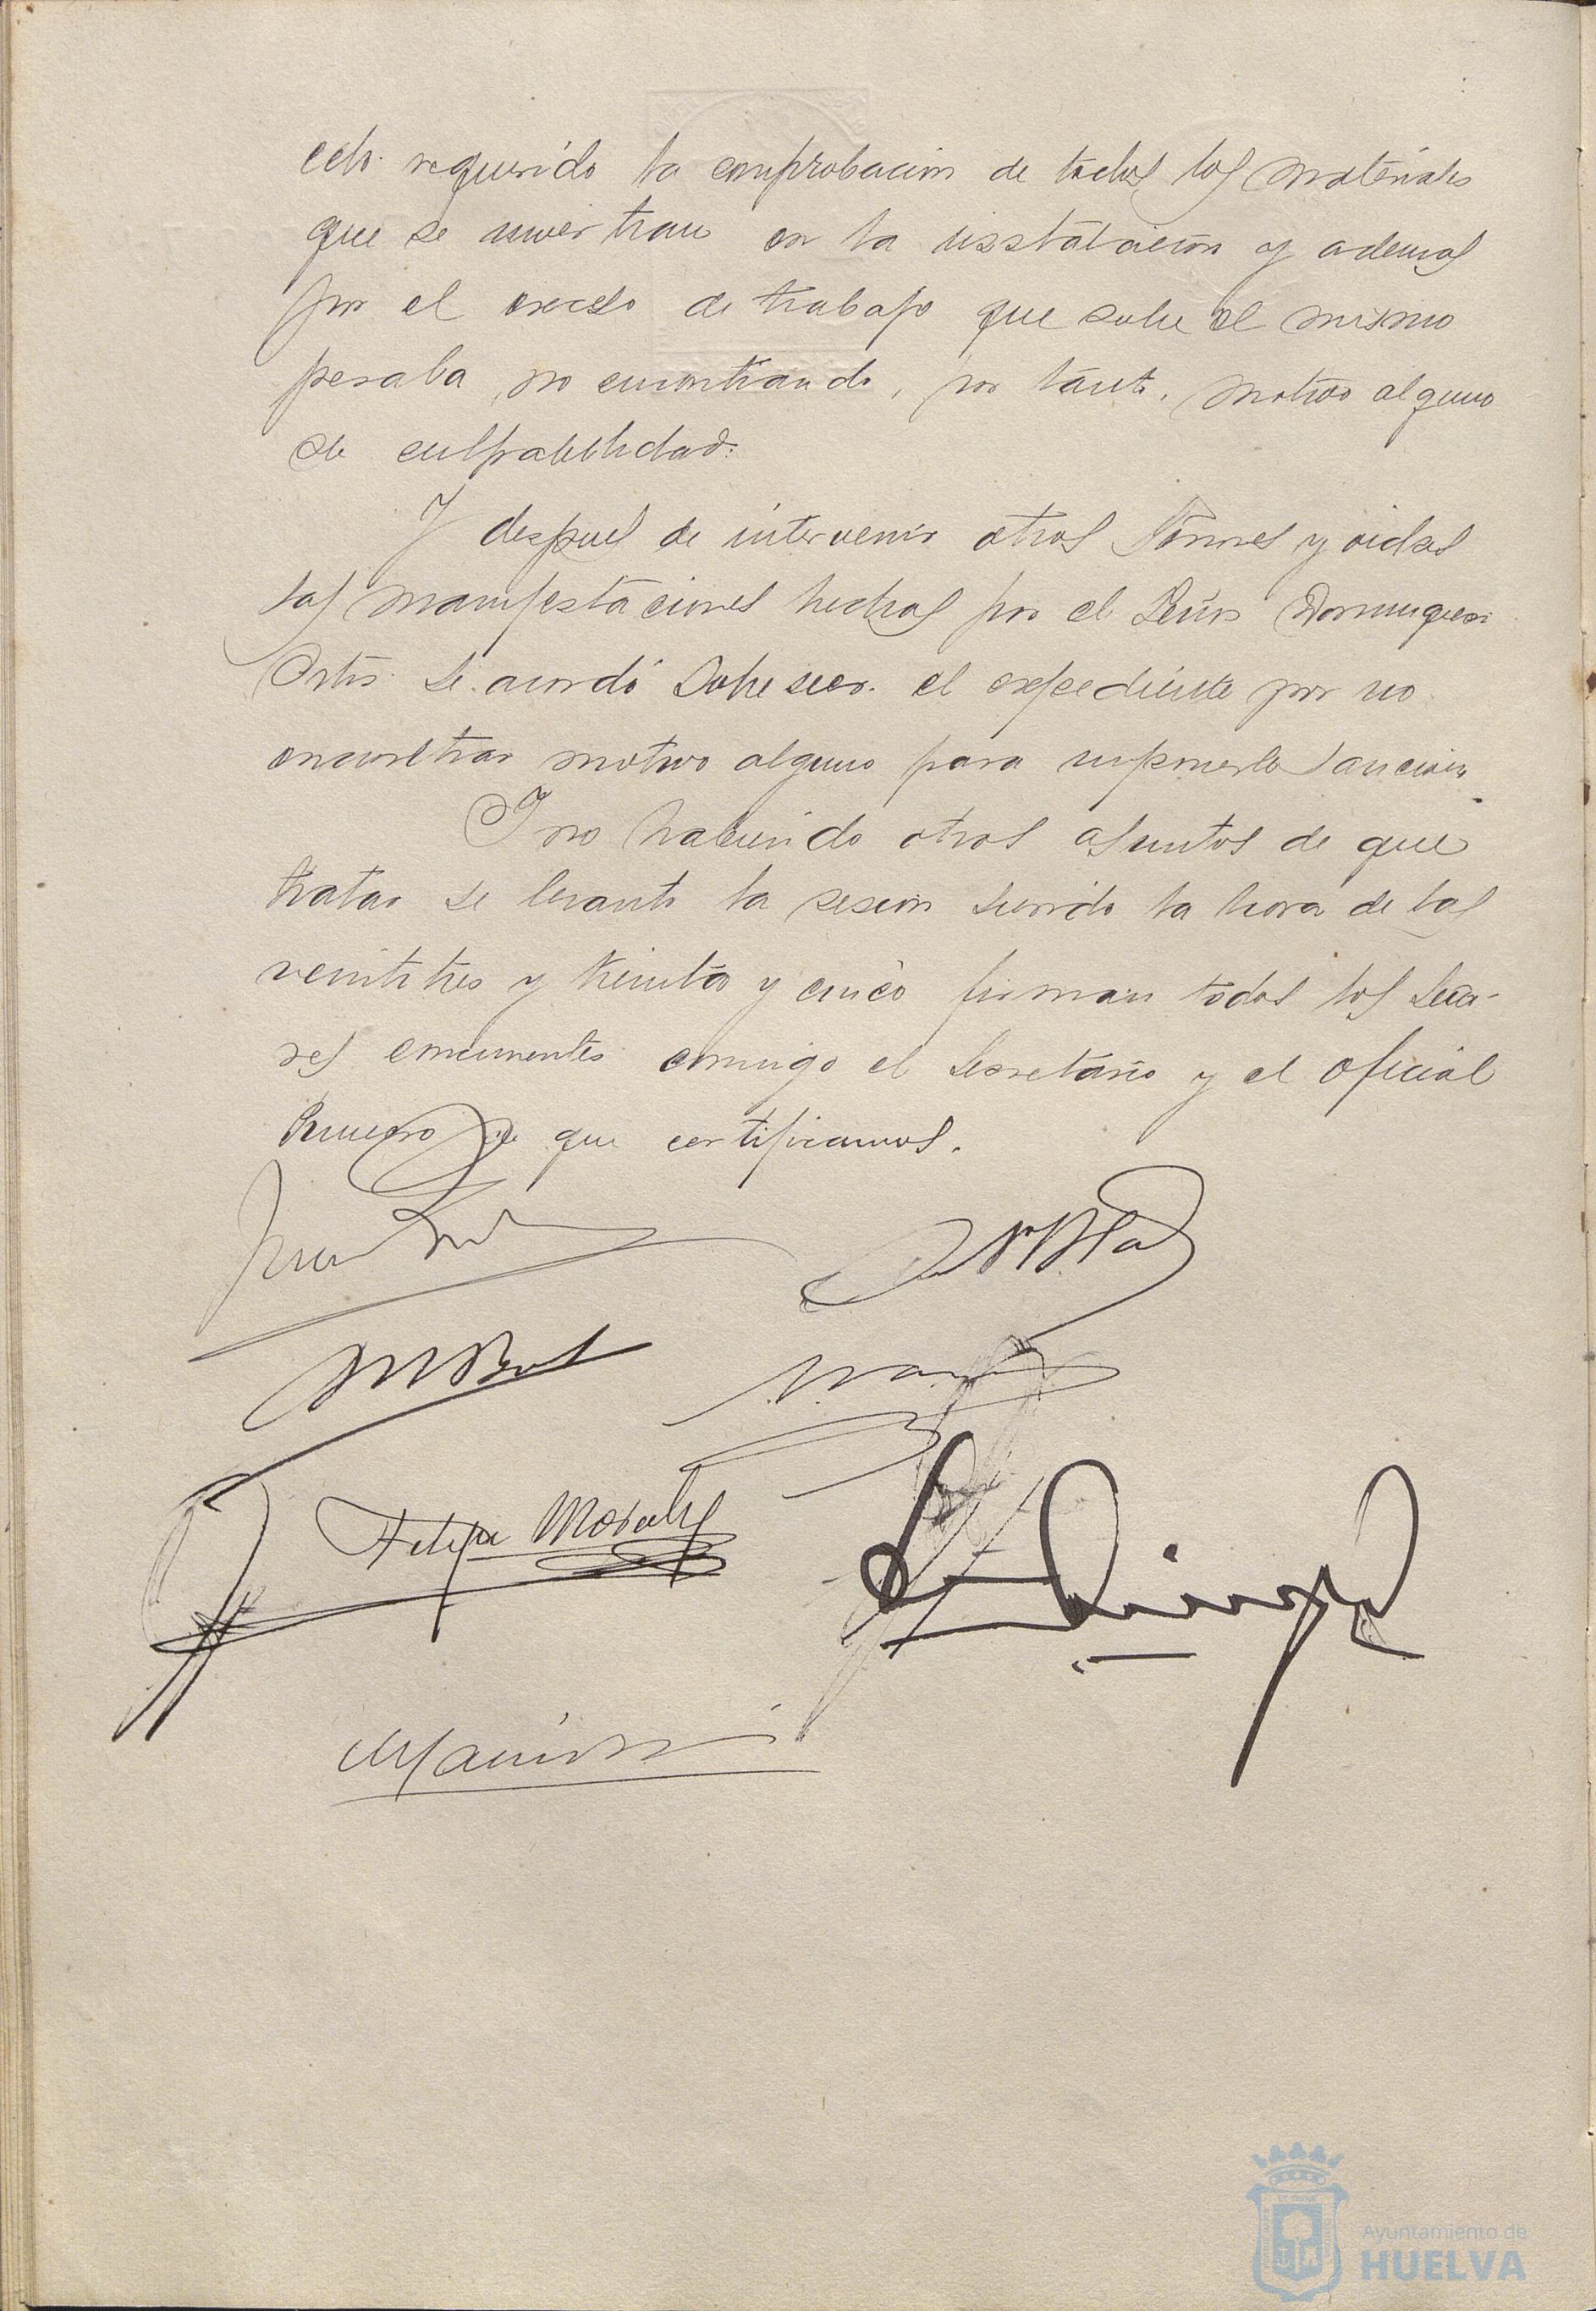 requerido la comprobación de todos los materiales
que se inviertan en la instalación y ademas
por el exceso de trabajo que sobre el mismo
pesaba no encontrando, por tanto, motivo alguno
de culpabilidad.
Y despues de intervenir otros Señores y oidas
las manifestaciones hechas por el Señor Dominguez
Ortiz se acordó sobreseer el expediente por no
encontrar motivo alguno para imponerle sancion
Y no habiendo otros asuntos de que
tratar se levanto la sesion siendo la hora de las
veintitres y treinta y cinco firman todos los Seño-
res concurrentes conmigo el Secretario y el oficial
Primero de que certificamos.
Felipe Morales
Ayuntamiento de
HUELVA